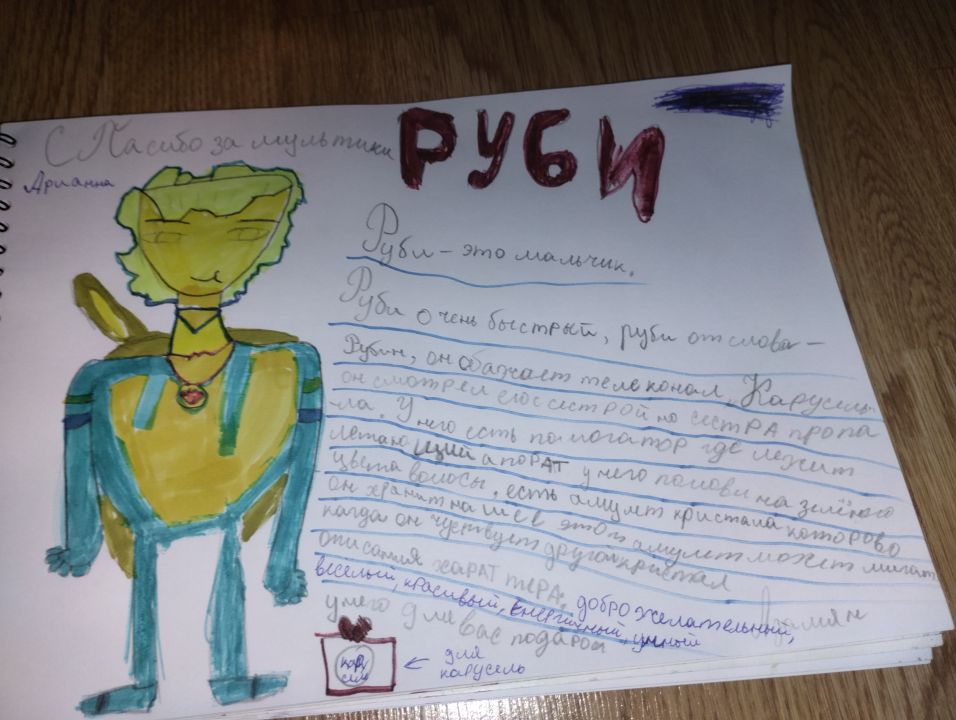 СПасибо за мультики
РУБИ
Арианна
Руби – это мальчик.
Руби очень быстрый, руби от слова –
Рубин, он обажает телеканал „Карусель“
он смотрел его с сестрой но сестРА пропа
ла. У него есть помогатор где лежит
летающий апоРАТ у него половина зелёного
цвета волосы, есть амулет кристала которово
он хранит на шее этот амулет может мигать
кагда он чувствует другой кристал
описания хаРАТтера: доброжелательный,
весёлый, красивый, енергичный, умный
у него для вас подарок
кару
сель
← для
карусель